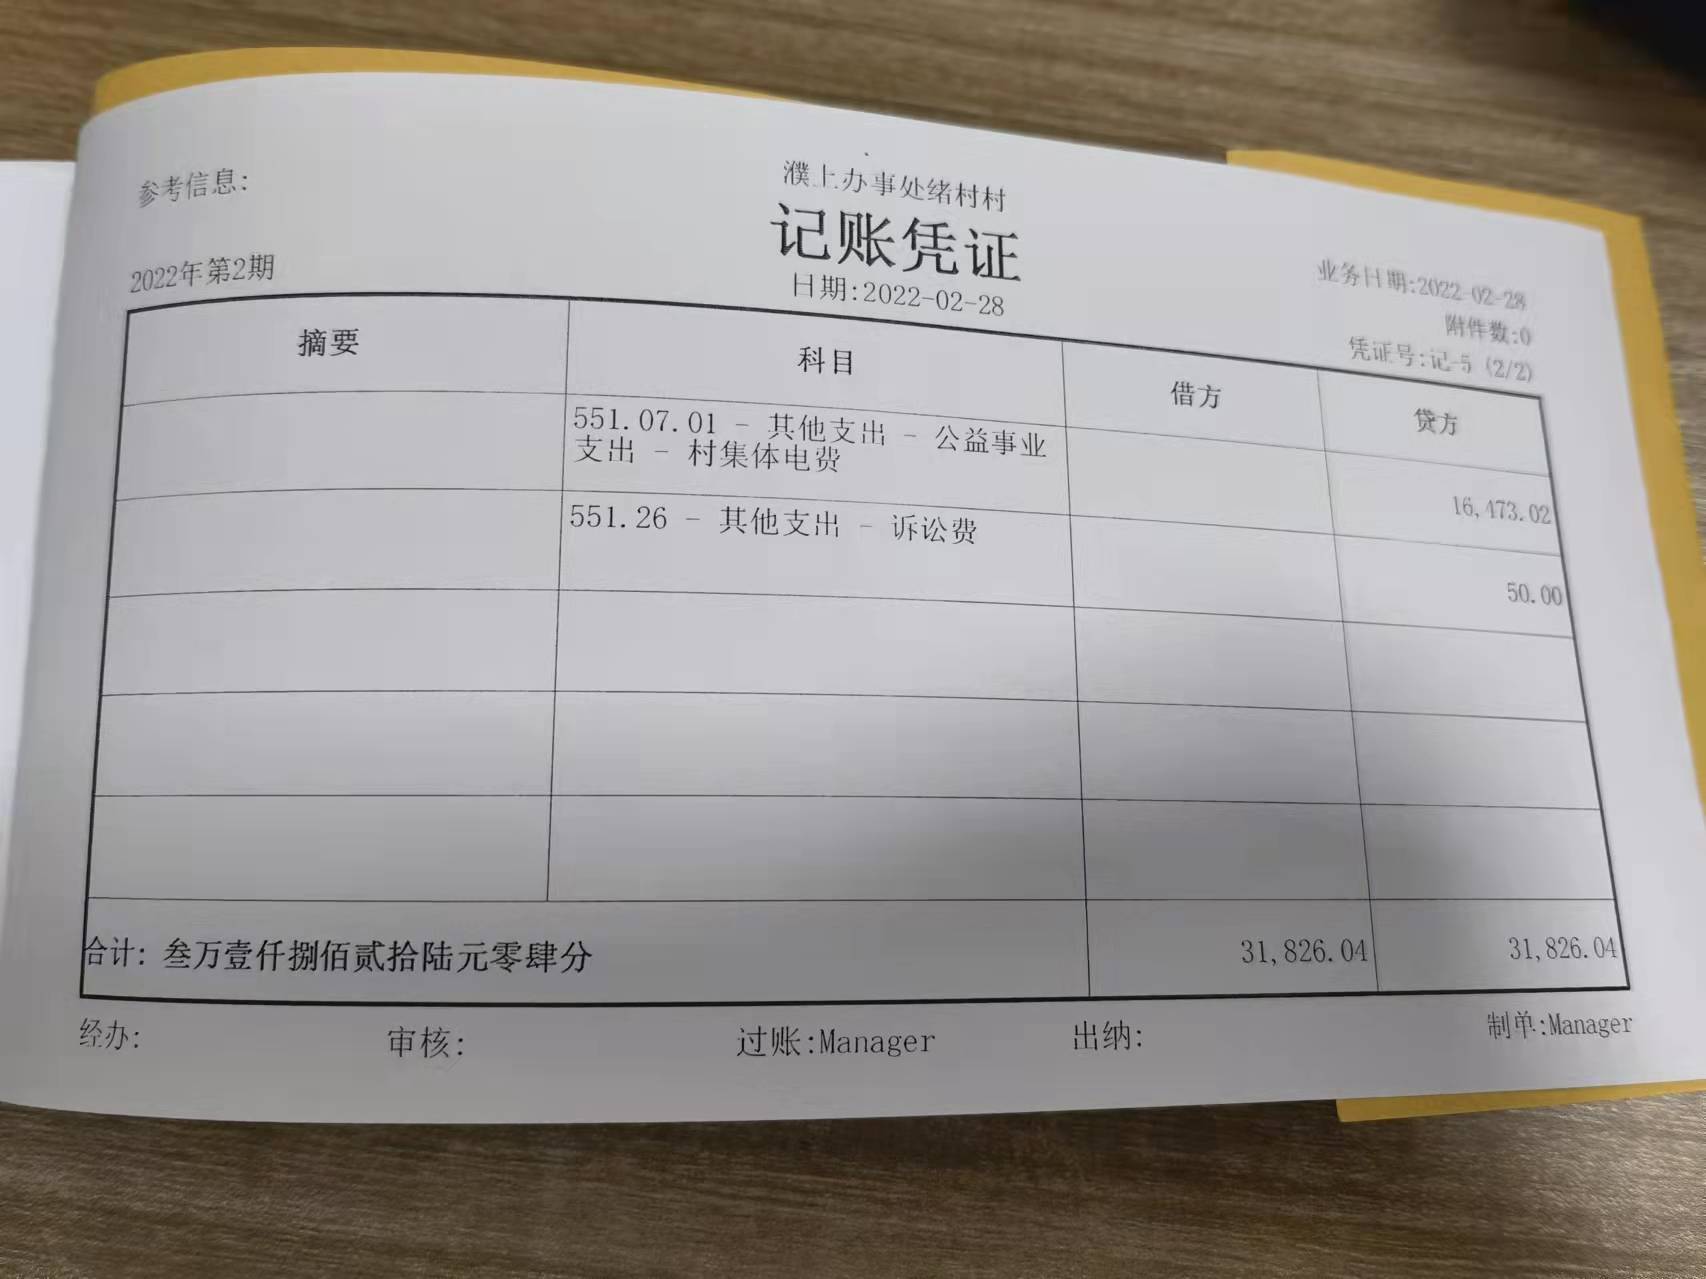 参考信息:
濮上办事处绪村村
记账凭证
2022年第2期
日期:2022-02-28
业务日期:2022-02-28
附件数:0
凭证号:记-5 (2/2)
摘要
科目
借方
贷方
551.07.01 - 其他支出 - 公益事业
支出 - 村集体电费
16,473.02
551.26 - 其他支出 - 诉讼费
50.00
合计: 叁万壹仟捌佰贰拾陆元零肆分
31,826.04
31,826.04
经办:
审核:
过账:Manager
出纳:
制单:Manager